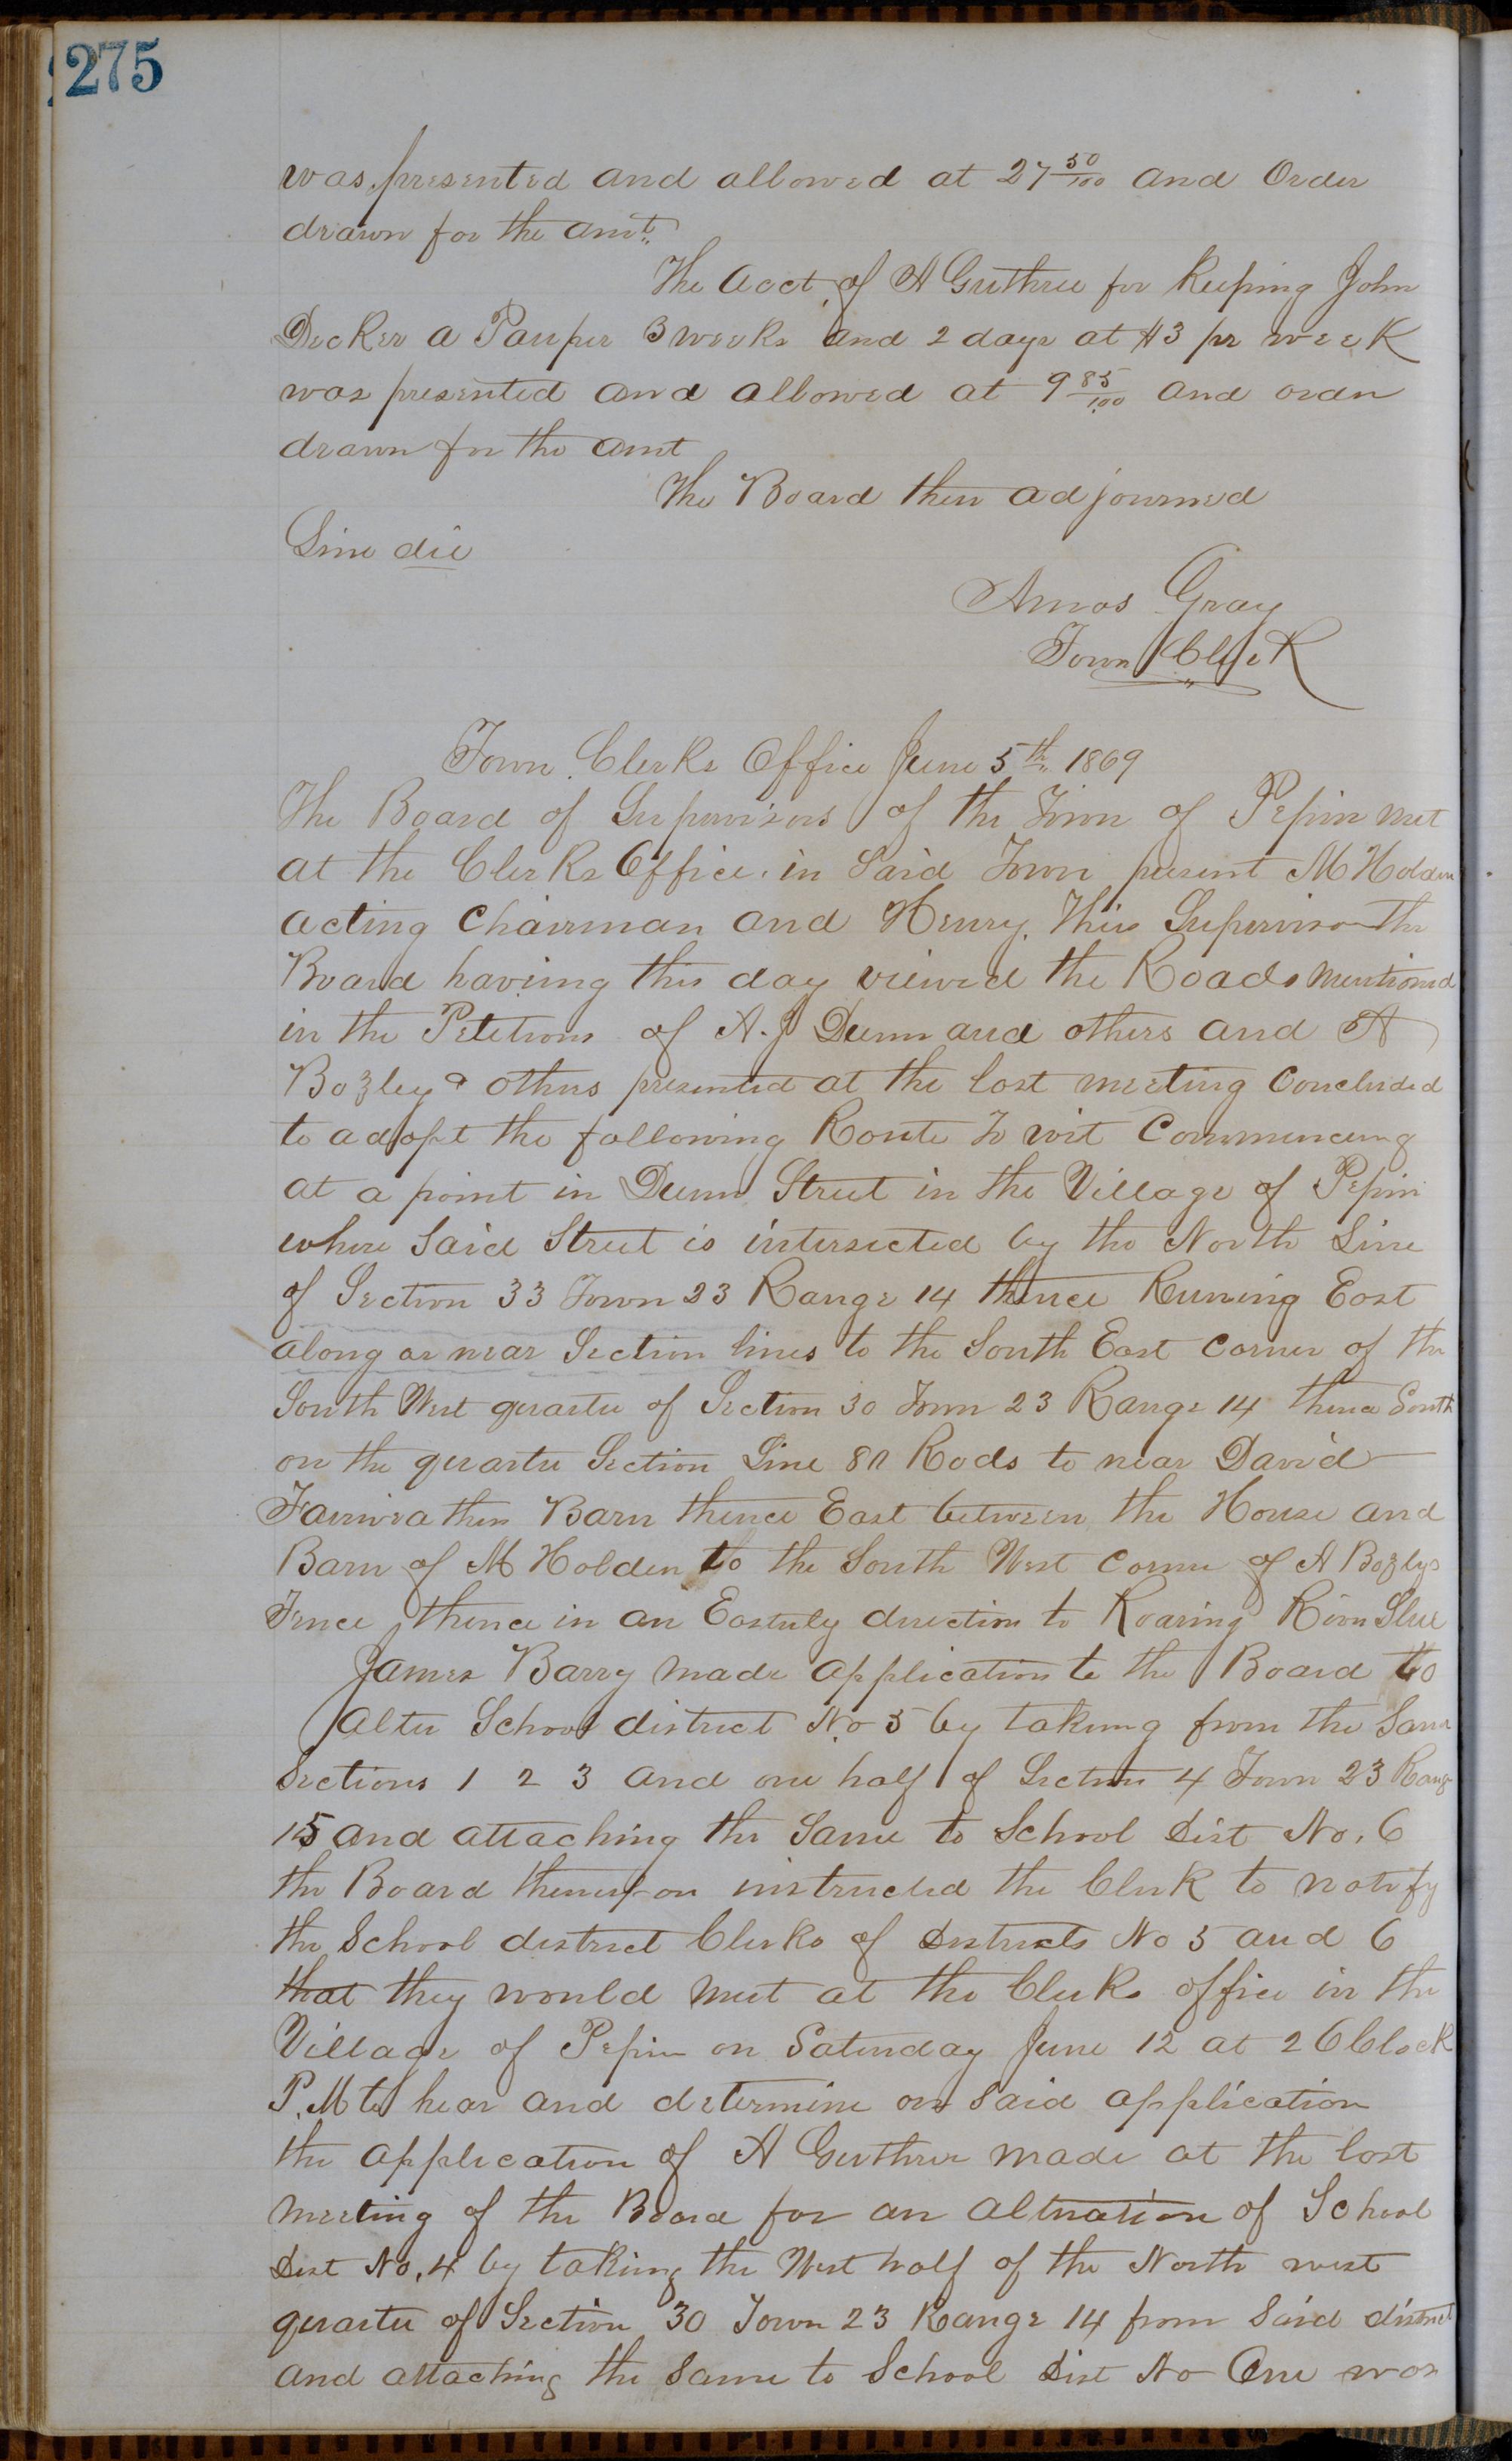 275
was presented and allowed at 27 50/100 and Order
drawn for the amt
The acct of A Guthrie for Keeping John
Decker a Pauper 3 weeks and 2 days at $3 pr week
was presented and allowed at 9 85/100 and order
drawn for the amt
The Board then adjourned
Sine die
Amos Gray
Town Clerk
Town Clerks Office June 5th 1869
The Board of Supervisors of the Town of Pepin met
at the Clerks Office in Said Town present M Holden
acting Chairman and Henry Supervisor the
Board having this day viewed the Roads mentioned
in the Petitions of A. J Dunn and others and A
Bozley & others presented at the last meeting Concluded
to adopt the following Route To wit Commencing
at a point in Dunn Street in the Village of Pepin
where Said Street is intersected by the North Line
of Section 33 Town 23 Range 14 thence Runing East
along or near Section lines to the South East Corner of the
South West quarter of Section 30 Town 23 Range 14 thence South
on the quarter Section Line 80 Rods to near David
Barn thence East between the House and
Barn of M Holden to the South West Corner of A Bozlys
Fence thence in an Easterly direction to Roaring River Slue
James Barry made application to the Board to
alter School district No 5 by takeing from the Same
Sections 1 2 3 and one half of Section 4 Town 23 Range
15 and attaching the Same to School Dist No. 6
the Board thereupon instructed the Clerk to notify
the School district Clerks of Districts No 5 and 6
that they would meet at the Clerks office in the
Village of Pepin on Saturday June 12 at 2 OClock
P. M to hear and determine on Said application
the application of A Guthrie made at the last
meeting of the Board for an alteration of School
Dist No. 4 by taking the West half of the North west
quarter of Section 30 Town 23 Range 14 from Said district
and attaching the Same to School Dist No One was